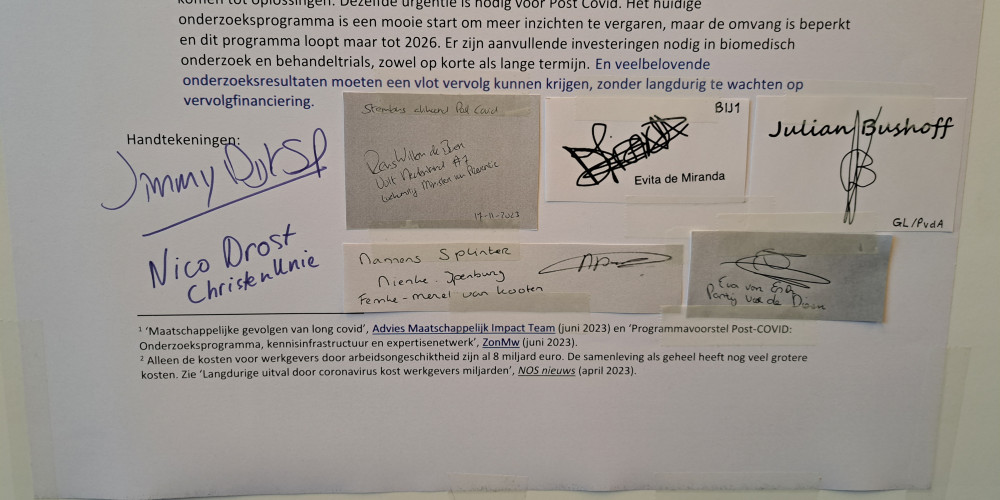 komen tot oplossingen. Dezelfde urgentie is nodig voor Post Covid. Het huidige
onderzoeksprogramma is een mooie start om meer inzichten te vergaren, maar de omvang is beperkt
en dit programma loopt maar tot 2026. Er zijn aanvullende investeringen nodig in biomedisch
onderzoek en behandeltrials, zowel op korte als lange termijn. En veelbelovende
onderzoeksresultaten moeten een vlot vervolg kunnen krijgen, zonder langdurig te wachten op
vervolgfinanciering.
Handtekeningen:
Jimmy Dijk SP
Nico Drost
ChristenUnie
Post Covid
17-11-2023
BIJ1
Evita de Miranda
Julian Bushoff
GL/PvdA
Namens Splinter
Nienke Ipenburg
Femke-merel van Kooten
Eva van Esch
Partij vd Dieren
¹ 'Maatschappelijke gevolgen van long covid', Advies Maatschappelijk Impact Team (juni 2023) en 'Programmavoorstel Post-COVID:
Onderzoeksprogramma, kennisinfrastructuur en expertisenetwerk', ZonMw (juni 2023).
² Alleen de kosten voor werkgevers door arbeidsongeschiktheid zijn al 8 miljard euro. De samenleving als geheel heeft nog veel grotere
kosten. Zie 'Langdurige uitval door coronavirus kost werkgevers miljarden', NOS nieuws (april 2023).